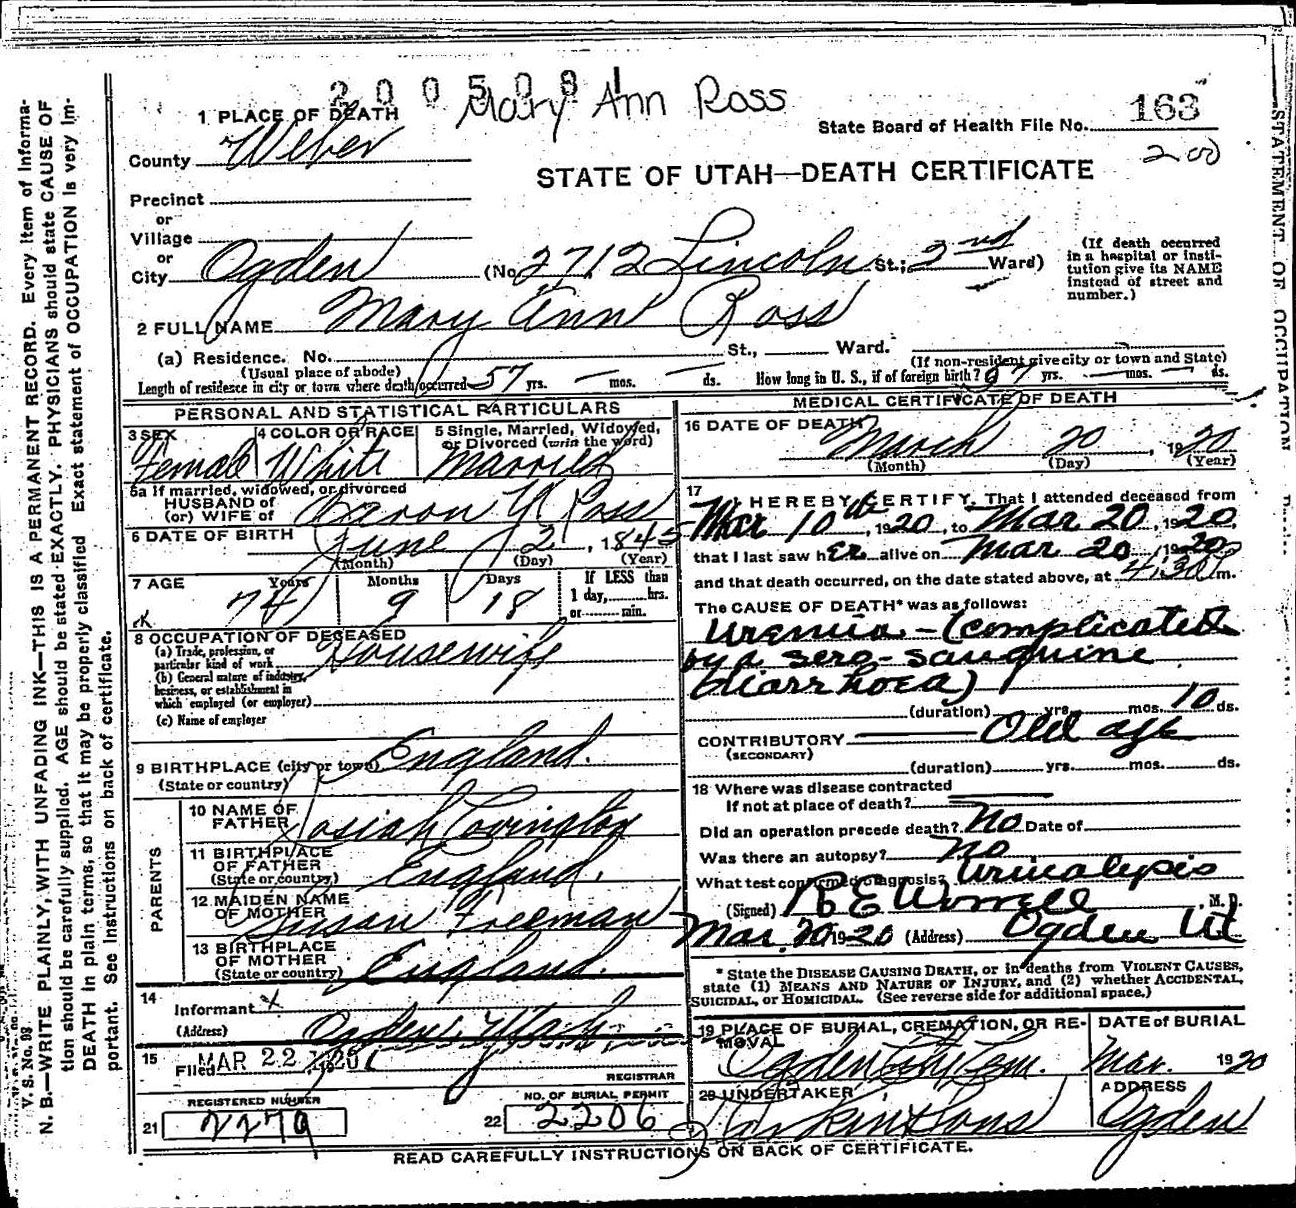 2 0 0 5 0 8 1
Mary Ann Ross
1 PLACE OF DEATH
State Board of Health File No. 163
200
County Weber
STATE OF UTAH—DEATH CERTIFICATE
Precinct
or
Village
or
City Ogden (No. 2712 Lincoln St.; 2nd Ward)
(If death occurred in a hospital or institution give its NAME instead of street and number.)
2 FULL NAME Mary Ann Ross
(a) Residence. No. St., Ward.
(Usual place of abode) (If non-resident give city or town and State)
Length of residence in city or town where death occurred 57 yrs. — mos. — ds. How long in U. S., if of foreign birth? 57 yrs. — mos. — ds.
PERSONAL AND STATISTICAL PARTICULARS
3 SEX Female
4 COLOR OR RACE White
5 Single, Married, Widowed, or Divorced (write the word) Married
5a If married, widowed, or divorced
HUSBAND of
(or) WIFE of Ross
6 DATE OF BIRTH June 2, 1845
(Month) (Day) (Year)
7 AGE Years 74 Months 9 Days 18
If LESS than 1 day, hrs. or min.
8 OCCUPATION OF DECEASED
(a) Trade, profession, or particular kind of work Housewife
(b) General nature of industry, business, or establishment in which employed (or employer)
(c) Name of employer
9 BIRTHPLACE (city or town) England.
(State or country)
PARENTS
10 NAME OF FATHER Josiah Covington
11 BIRTHPLACE OF FATHER England.
(State or country)
12 MAIDEN NAME OF MOTHER Susan Freeman
13 BIRTHPLACE OF MOTHER England.
(State or country)
14
Informant x
(Address) Ogden, Utah
15
Filed MAR 22 1920
REGISTRAR
REGISTERED NUMBER
21 2279
NO. OF BURIAL PERMIT
22 2206
MEDICAL CERTIFICATE OF DEATH
16 DATE OF DEATH March 20, 1920
(Month) (Day) (Year)
17
I HEREBY CERTIFY, That I attended deceased from
Mar 10th, 1920, to Mar 20, 1920,
that I last saw her alive on Mar 20, 1920
and that death occurred, on the date stated above, at 4:30 m.
The CAUSE OF DEATH* was as follows:
Uremia — (complicated
by a sero-sanguine
diarrhoea)
(duration) yrs. mos. 10 ds.
CONTRIBUTORY Old age
(SECONDARY)
(duration) yrs. mos. ds.
18 Where was disease contracted
If not at place of death?
Did an operation precede death? No Date of
Was there an autopsy? No
What test confirmed diagnosis? Urinalysis
(Signed) R E Worrell, M. D.
Mar. 20 1920 (Address) Ogden Ut
* State the DISEASE CAUSING DEATH, or in deaths from VIOLENT CAUSES,
state (1) MEANS AND NATURE OF INJURY, and (2) whether ACCIDENTAL,
SUICIDAL, or HOMICIDAL. (See reverse side for additional space.)
19 PLACE OF BURIAL, CREMATION, OR REMOVAL
Ogden City Cem.
DATE of BURIAL
Mar. 1920
20 UNDERTAKER
ADDRESS
Ogden
READ CAREFULLY INSTRUCTIONS ON BACK OF CERTIFICATE.
V. S. No. 98
N. B.—WRITE PLAINLY, WITH UNFADING INK—THIS IS A PERMANENT RECORD. Every item of information should be carefully supplied. AGE should be stated EXACTLY. PHYSICIANS should state CAUSE OF DEATH in plain terms, so that it may be properly classified. Exact statement of OCCUPATION is very important. See instructions on back of certificate.
STATEMENT OF OCCUPATION